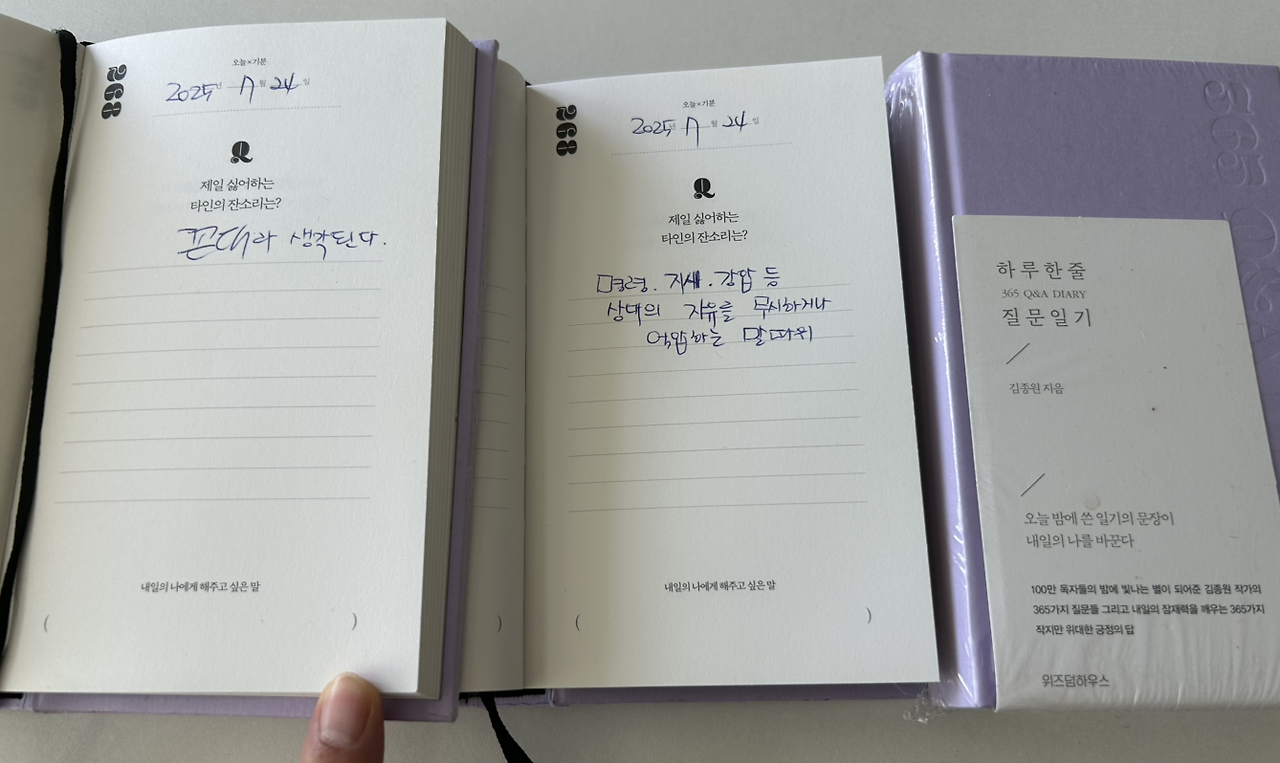 268
오늘×기분
2025년 7월 24일
Q
제일 싫어하는
타인의 잔소리는?
꼰대라 생각된다.
내일의 나에게 해주고 싶은 말
( )
)
268
오늘×기분
2025년 7월 24일
Q
제일 싫어하는
타인의 잔소리는?
명령. 지새. 강압 등
상대의 자유를 무시하거나
억압하는 말따위
내일의 나에게 해주고 싶은 말
( )
365 Q&A
하루 한 줄
365 Q&A DIARY
질문 일기
김종원 지음
오늘 밤에 쓴 일기의 문장이
내일의 나를 바꾼다
100만 독자들의 밤에 빛나는 별이 되어준 김종원 작가의
365가지 질문들 그리고 내일의 잠재력을 깨우는 365가지
작지만 위대한 긍정의 답
위즈덤하우스